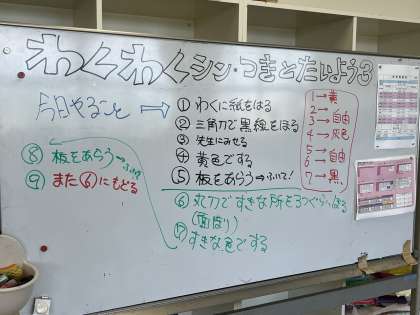 わくわくシン・つきとたいようろ
今日やること →
① わくに紙をはる
② 三角刀で黒線をほる
③ 先生にみせる
④ 黄色でする
⑤ 板をあらう→ふいて!
⑥ 丸刀ですきな所を3つぐらいほる
(面ぼり)
⑦ すきな色でする
⑧ 板をあらう→ふいて
⑨ また⑥にもどる
1→黄
2→
3→自由
4→灰色
5→
6→自由
7→黒